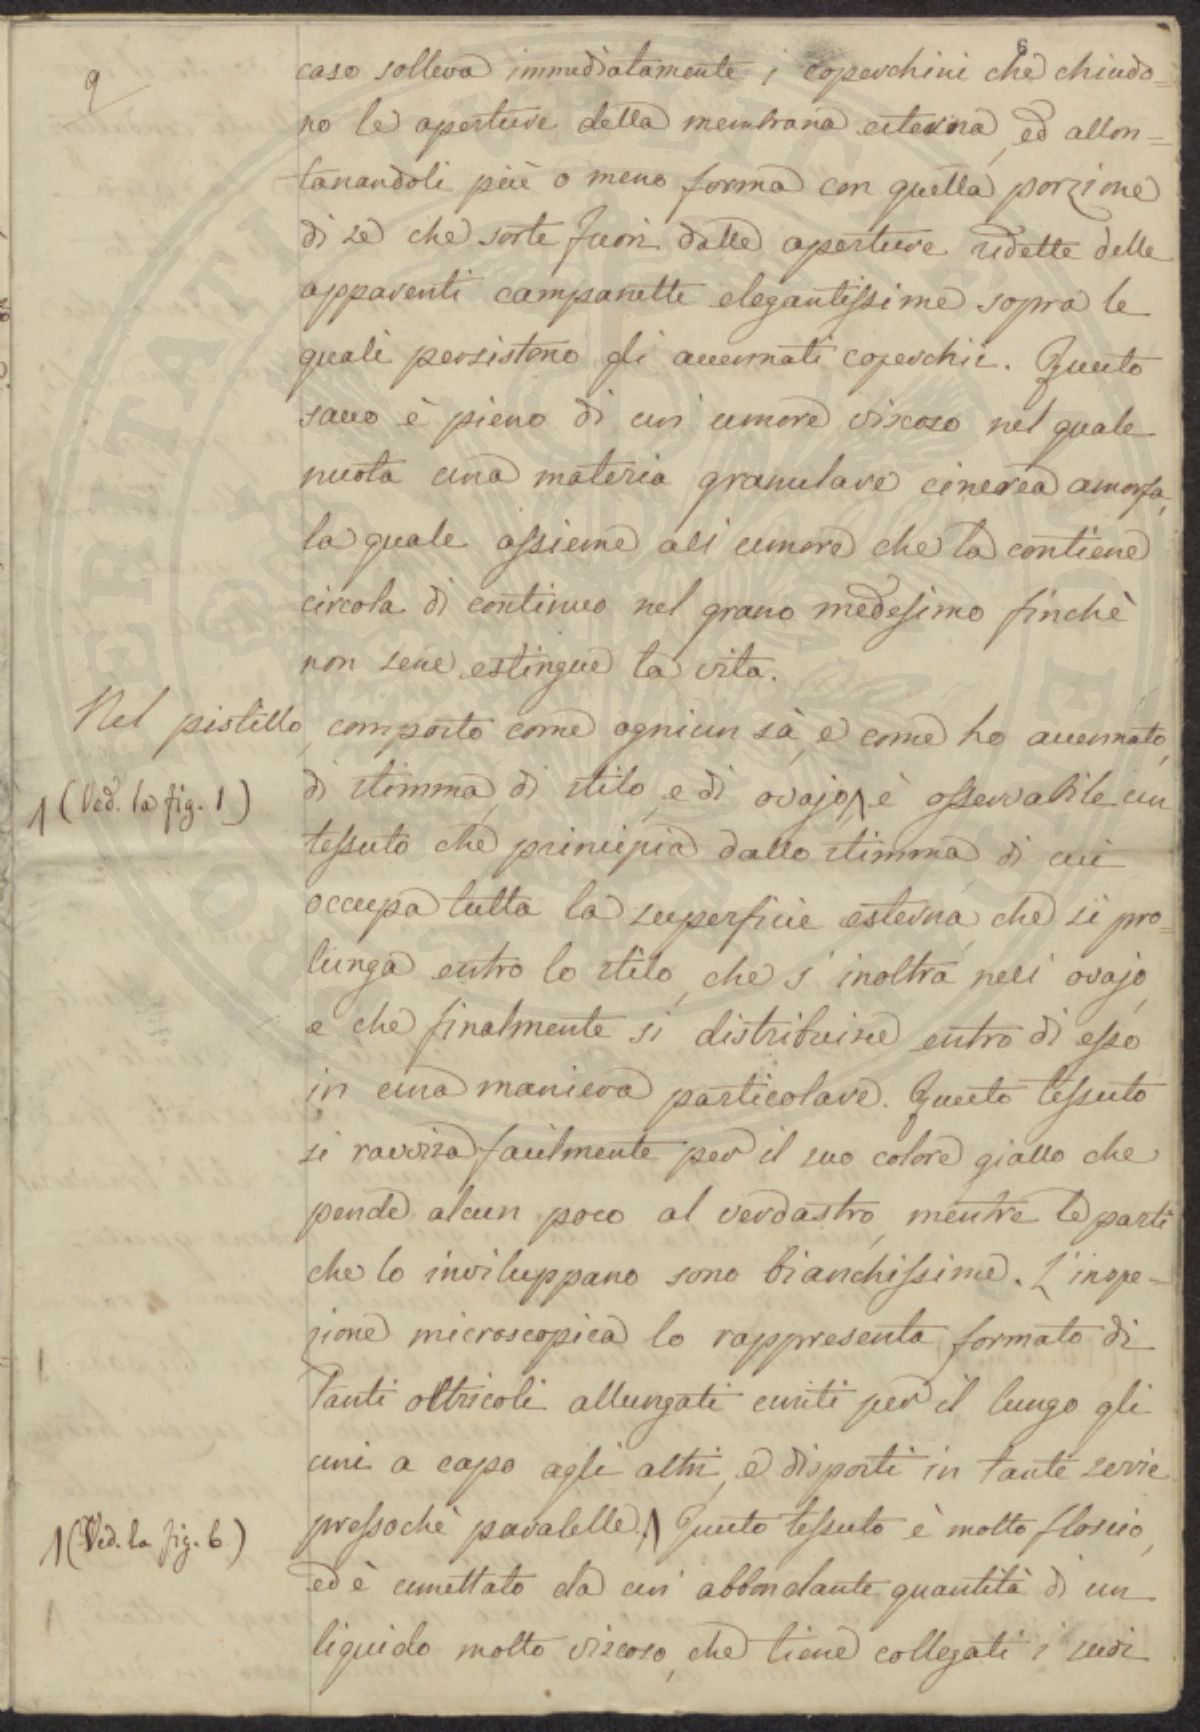 9
6
caso solleva immediatamente i coperchini che chiudo=
no le aperture della membrana esterna, ed allon=
tanandoli più o meno forma con quella porzione
di se che sorte fuori dalle aperture sudette delle
apparenti campanette elegantissime sopra le
quali persistono gli accennati coperchii. Questo
sacco è pieno di un' umore viscoso nel quale
nuota una materia granulare cinerea amorfa,
la quale assieme all' umore che la contiene
circola di continuo nel grano medesimo finchè
non sene estingue la vita.
Nel pistillo, composto come ogniun sà, e come ho accennato,
di stimma, di stilo, e di ovajo, è osservabile un
1 (Ved. la fig. 1)
tessuto che principia dallo stimma, di cui
occupa tutta la superficie esterna, che si pro=
lunga entro lo stilo, che s' inoltra nell' ovajo,
e che finalmente si distribuisce entro di esso
in una maniera particolare. Questo tessuto
si ravvisa facilmente per il suo colore giallo che
pende alcun poco al verdastro, mentre le parti
che lo inviluppano sono bianchissime. L' inspe=
zione microscopica lo rappresenta formato di
tanti otricoli allungati uniti per il lungo gli
uni a capo agli altri, e disposti in tante serie
pressochè paralelle. Questo tessuto è molto floscio,
1 (Ved. la fig. 6.)
ed è umettato da un' abbondante quantità di un
liquido molto viscoso, che tiene collegati i suoi